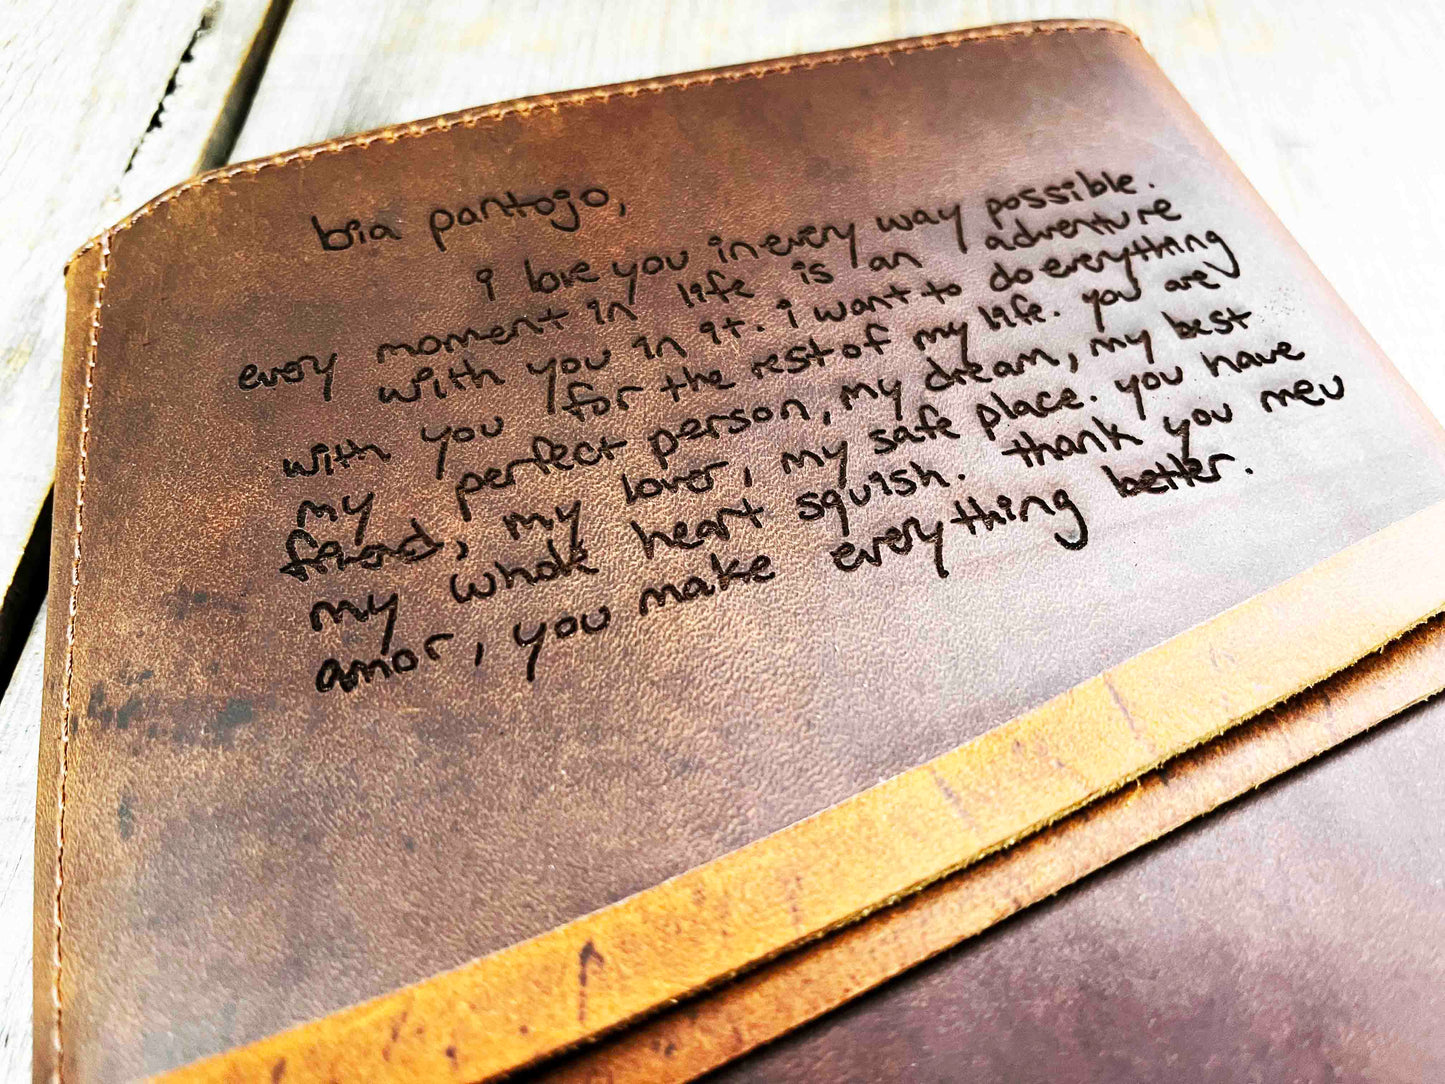 bia pantojo,
i love you in every way possible.
every moment in life is an adventure
with you in it. i want to do everything
with you for the rest of my life. you are
my perfect person, my dream, my best
friend, my lover, my safe place. you have
my whole heart squish. thank you meu
amor, you make everything better.